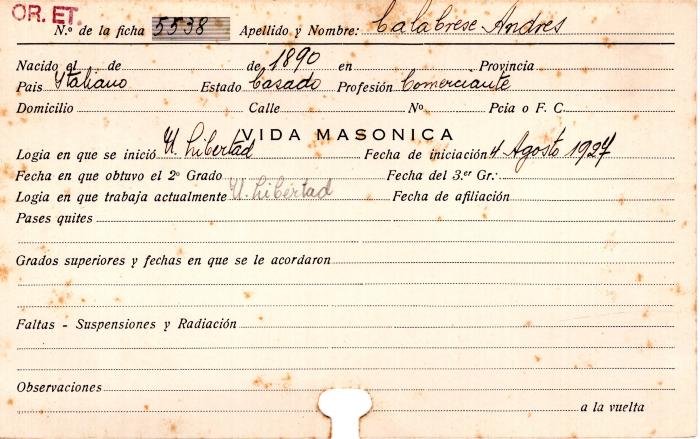 OR. ET.
N.º de la ficha 5538 Apellido y Nombre: Calabrese Andres
Nacido el de de 1890 en Provincia
Pais Italiano Estado Casado Profesión Comerciante
Domicilio Calle Nº Pcia o F. C.
VIDA MASONICA
Logia en que se inició U. Libertad Fecha de iniciación 4 Agosto 1927
Fecha en que obtuvo el 2º Grado Fecha del 3.er Gr.:
Logia en que trabaja actualmente U. Libertad Fecha de afiliación
Pases quites
Grados superiores y fechas en que se le acordaron
Faltas - Suspensiones y Radiación
Observaciones
a la vuelta